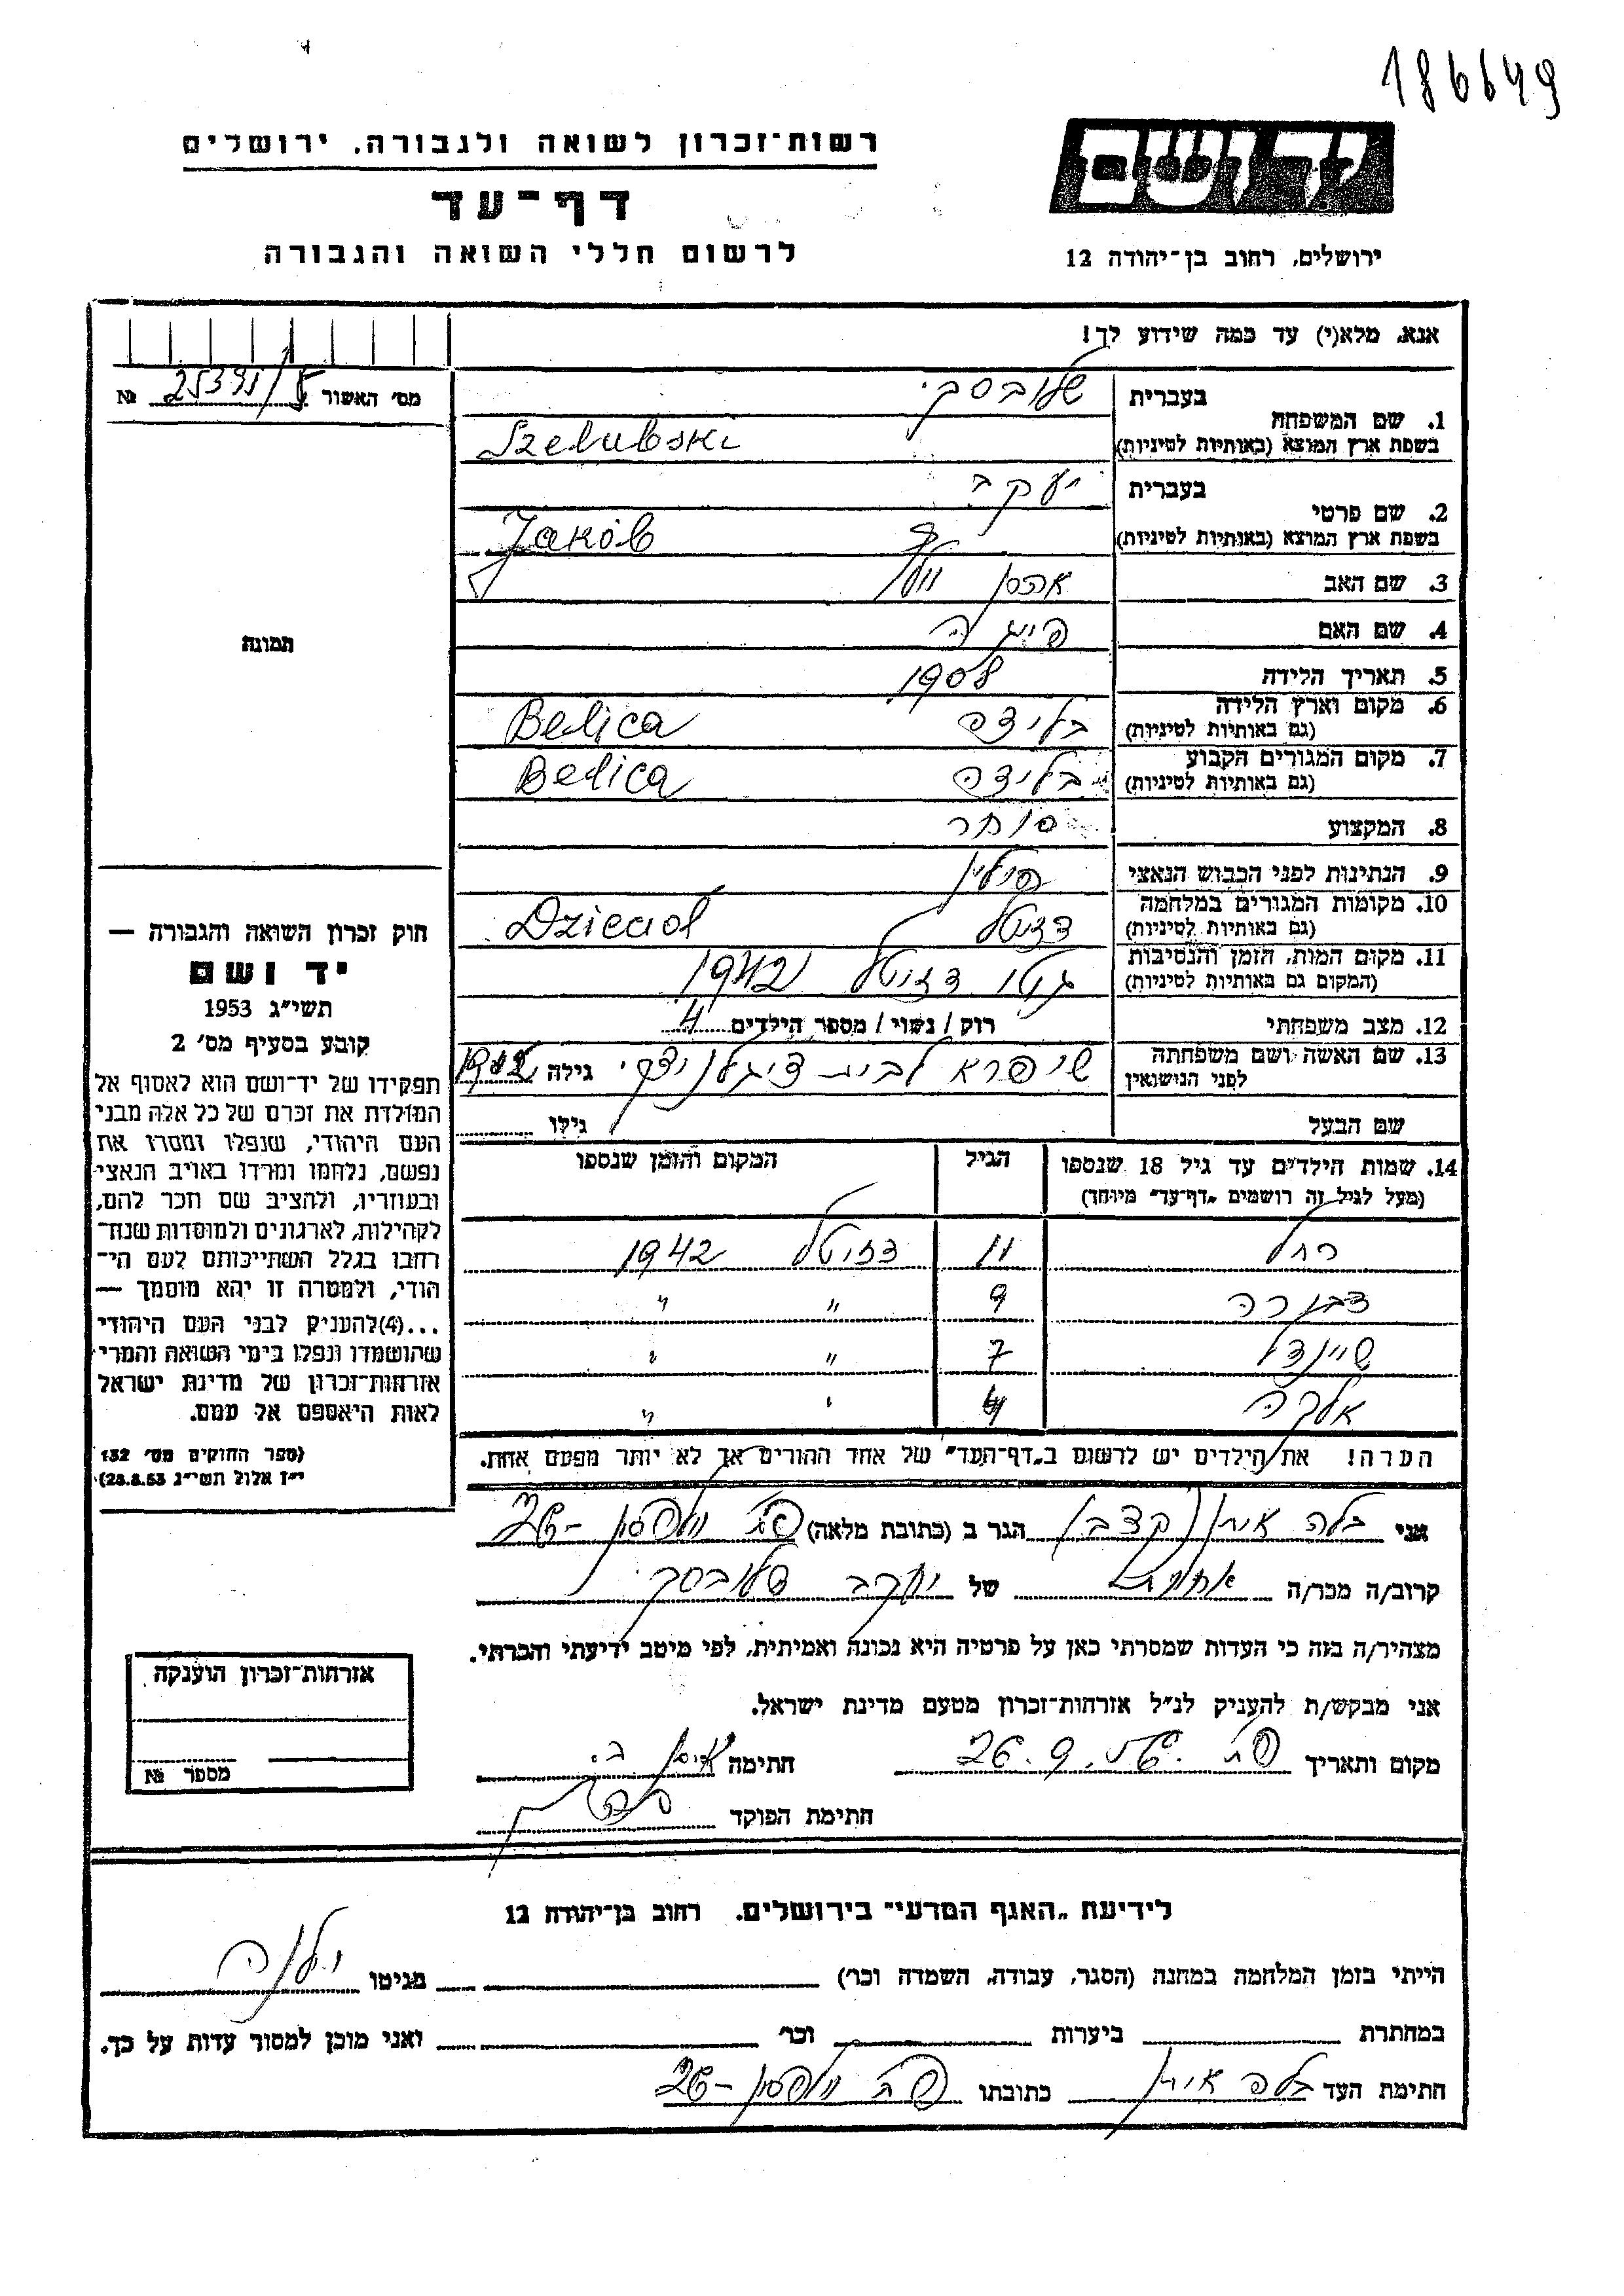 186649
יד ושם
רשות־זכרון לשואה ולגבורה, ירושלים
דף־עד
לרשום חללי השואה והגבורה
ירושלים, רחוב בן־יהודה 12
אנא, מלא(י) עד כמה שידוע לך!
מס' האשור №
1. שם המשפחה בעברית שלובסקי
בשפת ארץ המוצא (באותיות לטיניות) Szelubski
2. שם פרטי בעברית יעקב
בשפת ארץ המוצא (באותיות לטיניות) Jakób
3. שם האב
4. שם האם פייגה
5. תאריך הלידה 1908
6. מקום וארץ הלידה בליצה Belica
(גם באותיות לטיניות)
7. מקום המגורים הקבוע בליצה Belica
(גם באותיות לטיניות)
8. המקצוע סוחר
9. הנתינות לפני הכבוש הנאצי פולין
10. מקומות המגורים במלחמה דזיטל Dzieciol
(גם באותיות לטיניות)
11. מקום המות, הזמן והנסיבות גטו דזיטל 1942
(המקום גם באותיות לטיניות)
12. מצב משפחתי רוק / נשוי / מספר הילדים 4
13. שם האשה ושם משפחתה שיפרא לבית גילה
לפני הנישואין
שם הבעל גילו
14. שמות הילדים עד גיל 18 שנספו הגיל המקום והזמן שנספו
(מעל לגיל זה רושמים "דף־עד" מיוחד)
רחל 11 דזיטל 1942
דבורה 9 " "
שיינדל 7 " "
אלקה 4 " "
הערה! את הילדים יש לרשום ב"דף־העד" של אחד ההורים אך לא יותר מפעם אחת.
תמונה
חוק זכרון השואה והגבורה —
יד ושם
תשי"ג 1953
קובע בסעיף מס' 2
תפקידו של יד־ושם הוא לאסוף אל
המולדת את זכרם של כל אלה מבני
העם היהודי, שנפלו ומסרו את
נפשם, נלחמו ומרדו באויב הנאצי
ובעוזריו, ולהציב שם וזכר להם,
לקהילות, לארגונים ולמוסדות שנח־
רבו בגלל השתייכותם לעם הי־
הודי, ולמטרה זו יהא מוסמך —
...(4) להעניק לבני העם היהודי
שהושמדו ונפלו בימי השואה והמרי
אזרחות־זכרון של מדינת ישראל
לאות היאספם אל עמם.
(ספר החוקים מס' 132
י"ז אלול תשי"ג 28.8.53)
אני בלה הגר ב (כתובת מלאה) 26
קרוב/ה מכר/ה אחות של יעקב שלובסקי
מצהיר/ה בזה כי העדות שמסרתי כאן על פרטיה היא נכונה ואמיתית, לפי מיטב ידיעתי והכרתי.
אני מבקש/ת להעניק לנ"ל אזרחות־זכרון מטעם מדינת ישראל.
מקום ותאריך חתימה
חתימת הפוקד
אזרחות־זכרון הוענקה
מספר №
לידיעת "האגף המדעי" בירושלים, רחוב בן־יהודה 12
הייתי בזמן המלחמה במחנה (הסגר, עבודה, השמדה וכר') מגיטו וילנה
במחתרת ביערות וכר' ואני מוכן למסור עדות על כך.
חתימת העד בלה כתובתו 26